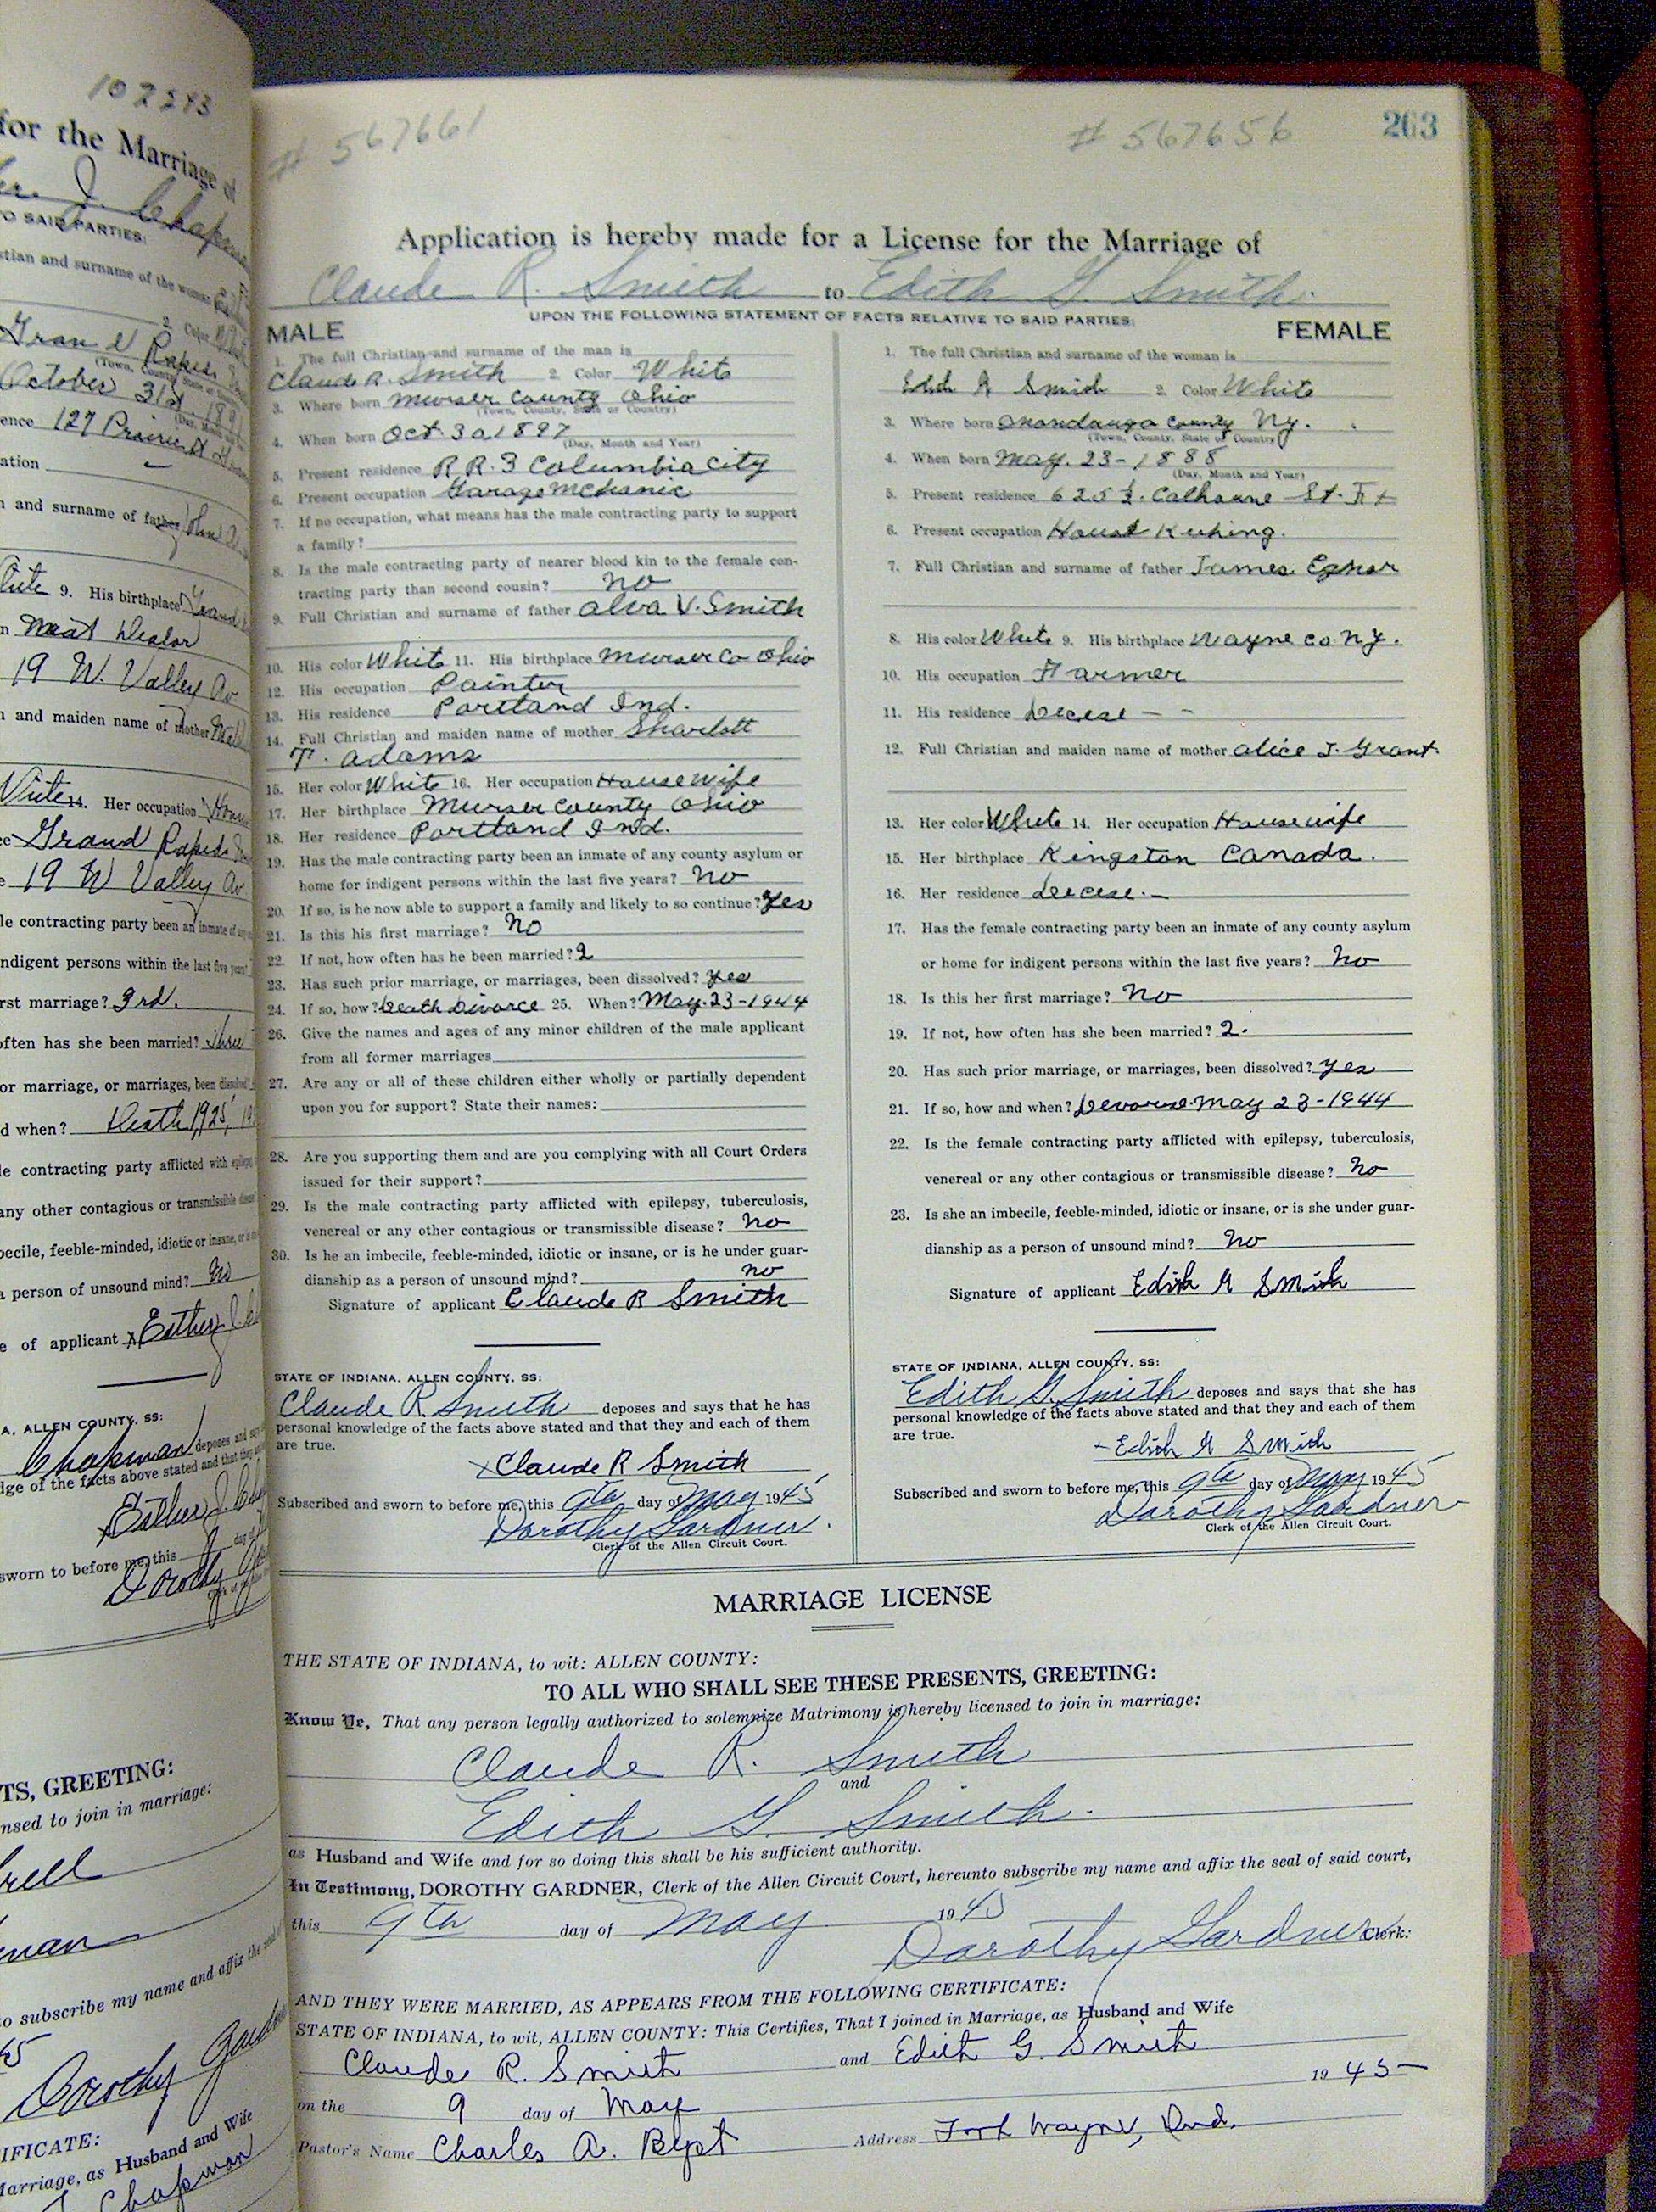 102293
for the Marriage of
TO SAID PARTIES:
stian and surname of the woman
2. Color
Grand Rapids
(Town, County, State or
October 31st 189
(Day, Month
ence 127 Prairie
ation
n and surname of father John
9. His birthplace Grand
n Meat Dealer
19 W. Valley Av
n and maiden name of mother
14. Her occupation
ce Grand Rapids
e 19 W Valley Av
le contracting party been an inmate of any
ndigent persons within the last five years
rst marriage? 3rd.
often has she been married?
or marriage, or marriages, been dissolved
d when? Death 1925,
le contracting party afflicted with epilepsy
any other contagious or transmissible disease
becile, feeble-minded, idiotic or insane, or is
a person of unsound mind? No
e of applicant x Esther J.
A, ALLEN COUNTY, SS:
Chapman deposes and say
dge of the facts above stated and that they
x Esther J.
sworn to before me, this 9 day
Dorothy
TS, GREETING:
nsed to join in marriage:
rell
man
to subscribe my name and affix the seal
45
Dorothy Gardner
IFICATE:
Marriage, as Husband and Wife
Chapman
# 567661
# 567656
263
Application is hereby made for a License for the Marriage of
Claude R. Smith to Edith G. Smith.
UPON THE FOLLOWING STATEMENT OF FACTS RELATIVE TO SAID PARTIES:
MALE
1. The full Christian and surname of the man is
Claude R. Smith 2. Color White
3. Where born Murser County Ohio
(Town, County, State or Country)
4. When born Oct. 30 1897
(Day, Month and Year)
5. Present residence R R. 3 Columbia City
6. Present occupation Garage Mchanic
7. If no occupation, what means has the male contracting party to support
a family?
8. Is the male contracting party of nearer blood kin to the female con-
tracting party than second cousin? no
9. Full Christian and surname of father Alva V. Smith
10. His color White 11. His birthplace Murser Co Ohio
12. His occupation Painter
13. His residence Portland Ind.
14. Full Christian and maiden name of mother Sharlott
T. Adams
15. Her color White 16. Her occupation House Wife
17. Her birthplace Murser County Ohio
18. Her residence Portland Ind.
19. Has the male contracting party been an inmate of any county asylum or
home for indigent persons within the last five years? No
20. If so, is he now able to support a family and likely to so continue? Yes
21. Is this his first marriage? No
22. If not, how often has he been married? 2
23. Has such prior marriage, or marriages, been dissolved? Yes
24. If so, how? Death Divorce 25. When? May. 23-1944
26. Give the names and ages of any minor children of the male applicant
from all former marriages
27. Are any or all of these children either wholly or partially dependent
upon you for support? State their names:
28. Are you supporting them and are you complying with all Court Orders
issued for their support?
29. Is the male contracting party afflicted with epilepsy, tuberculosis,
venereal or any other contagious or transmissible disease? No
30. Is he an imbecile, feeble-minded, idiotic or insane, or is he under guar-
dianship as a person of unsound mind? no
Signature of applicant Claude R Smith
STATE OF INDIANA, ALLEN COUNTY, SS:
Claude R. Smith deposes and says that he has
personal knowledge of the facts above stated and that they and each of them
are true.
x Claude R Smith
Subscribed and sworn to before me, this 9th day of May 1945
Dorothy Gardner.
Clerk of the Allen Circuit Court.
FEMALE
1. The full Christian and surname of the woman is
Edith G Smith 2. Color White
3. Where born Onondauga County Ny.
(Town, County, State or Country)
4. When born May. 23-1888
(Day, Month and Year)
5. Present residence 625 ½. Calhoune St. Ft
6. Present occupation House Keeping.
7. Full Christian and surname of father James Egnor
8. His color White 9. His birthplace Wayne Co. N.Y.
10. His occupation Farmer
11. His residence Decese - -
12. Full Christian and maiden name of mother Alice J. Grant.
13. Her color White 14. Her occupation House wife
15. Her birthplace Kingston Canada.
16. Her residence Decese. -
17. Has the female contracting party been an inmate of any county asylum
or home for indigent persons within the last five years? No
18. Is this her first marriage? No
19. If not, how often has she been married? 2.
20. Has such prior marriage, or marriages, been dissolved? Yes
21. If so, how and when? Devorse. May 23-1944
22. Is the female contracting party afflicted with epilepsy, tuberculosis,
venereal or any other contagious or transmissible disease? No
23. Is she an imbecile, feeble-minded, idiotic or insane, or is she under guar-
dianship as a person of unsound mind? No
Signature of applicant Edith G Smith
STATE OF INDIANA, ALLEN COUNTY, SS:
Edith G. Smith deposes and says that she has
personal knowledge of the facts above stated and that they and each of them
are true.
- Edith G Smith
Subscribed and sworn to before me, this 9th day of May 1945
Dorothy Gardner
Clerk of the Allen Circuit Court.
MARRIAGE LICENSE
THE STATE OF INDIANA, to wit: ALLEN COUNTY:
TO ALL WHO SHALL SEE THESE PRESENTS, GREETING:
Know Ye, That any person legally authorized to solemnize Matrimony is hereby licensed to join in marriage:
Claude R. Smith
and
Edith G. Smith.
as Husband and Wife and for so doing this shall be his sufficient authority.
In Testimony, DOROTHY GARDNER, Clerk of the Allen Circuit Court, hereunto subscribe my name and affix the seal of said court,
this 9th day of May 1945
Dorothy Gardner Clerk:
AND THEY WERE MARRIED, AS APPEARS FROM THE FOLLOWING CERTIFICATE:
STATE OF INDIANA, to wit, ALLEN COUNTY: This Certifies, That I joined in Marriage, as Husband and Wife
Claude R. Smith and Edith G. Smith
on the 9 day of May 1945
Pastor's Name Charles A. Address Fort Wayne, Ind.